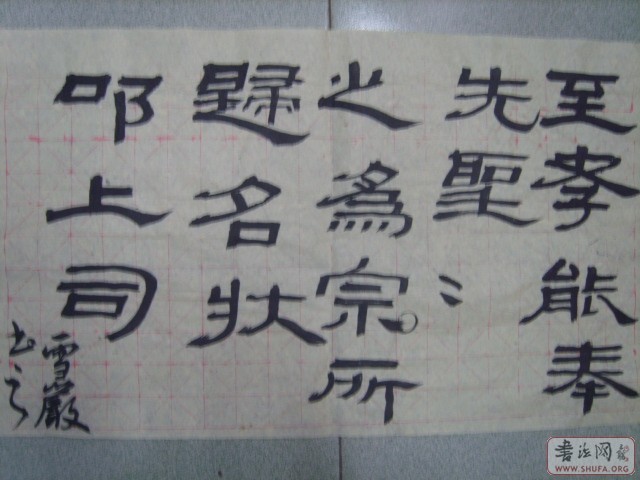 至孝能奉
先聖〻
之為宗所
歸名狀
叩上司
雪巖
书之
書法网
WWW.SHUFA.ORG